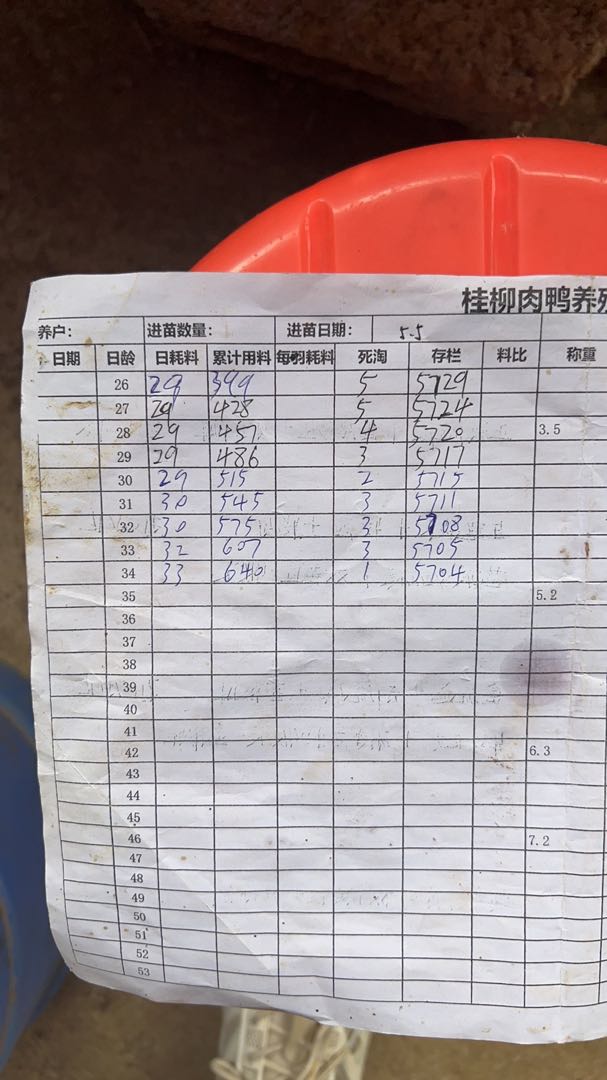 桂柳肉鸭养殖
养户: 进苗数量: 进苗日期: 5.5
日期 日龄 日耗料 累计用料 每羽耗料 死淘 存栏 料比 称重
26 29 399 5 5729
27 29 428 5 5724
28 29 457 4 5720 3.5
29 29 486 3 5717
30 29 515 2 5715
31 30 545 3 5711
32 30 575 3 5708
33 32 607 3 5705
34 33 640 1 5704
35 5.2
36
37
38
39
40
41
42 6.3
43
44
45
46 7.2
47
48
49
50
51
52
53